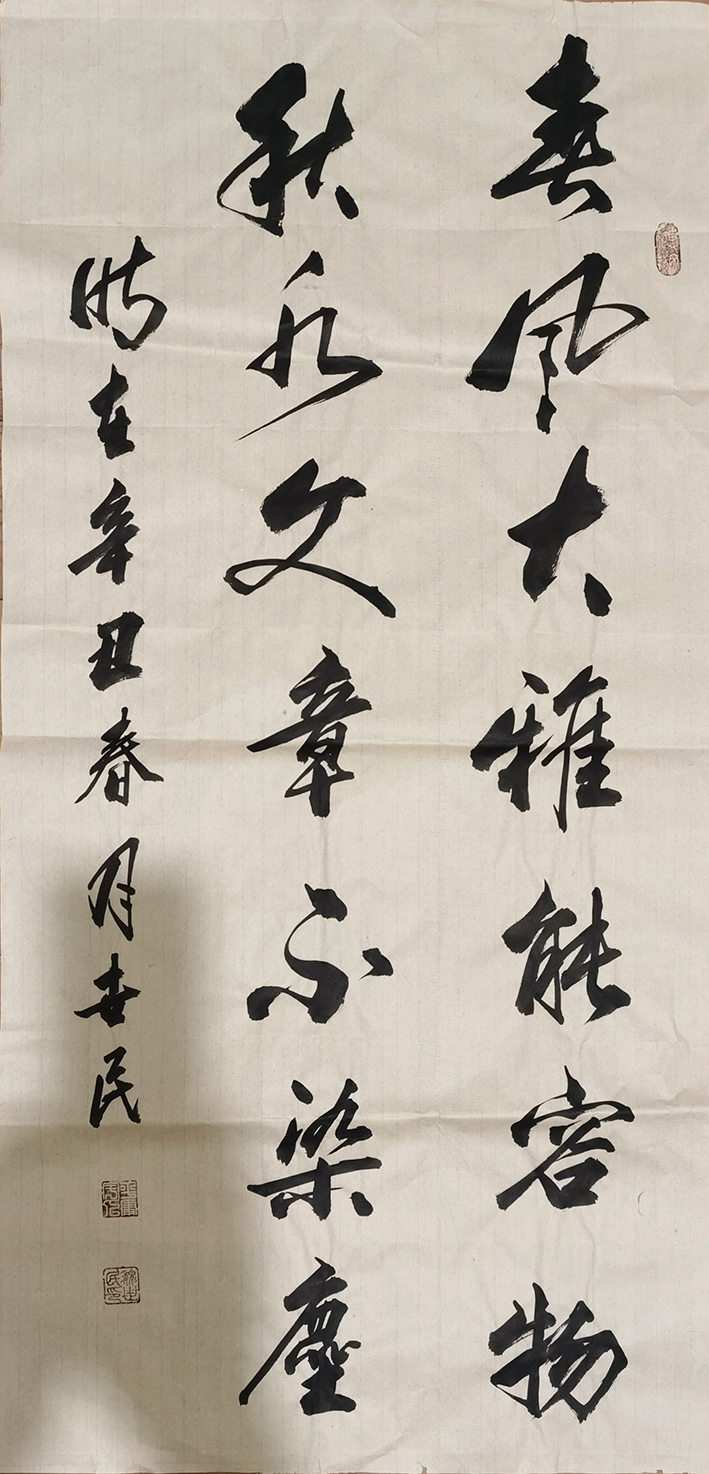 春风大雅能容物
秋水文章不染塵
时在辛丑春月世民